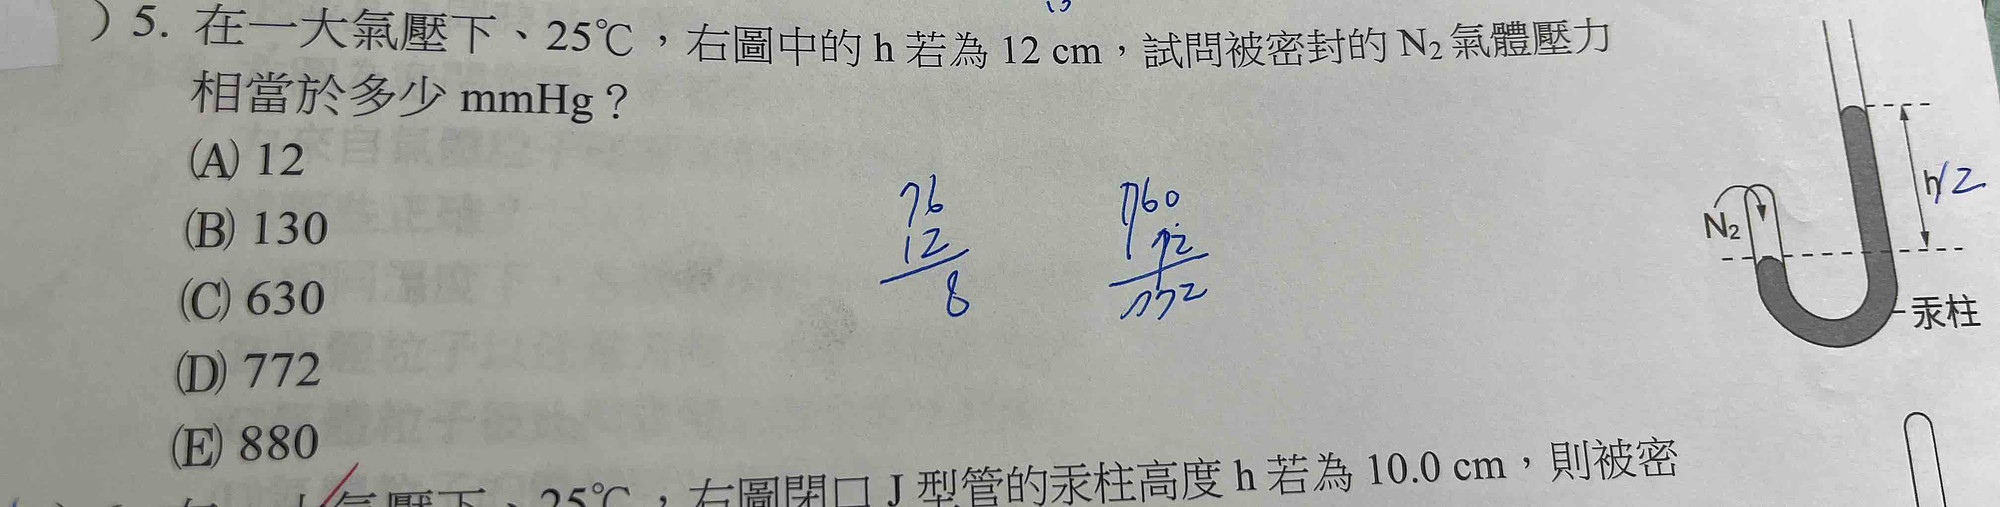 )5. 在一大氣壓下、25℃,右圖中的 h 若為 12 cm,試問被密封的 N₂ 氣體壓力
相當於多少 mmHg?
(A) 12
(B) 130
(C) 630
(D) 772
(E) 880
76
12
8
760
12
772
h
12
N₂
汞柱
25℃,右圖閉口 J 型管的汞柱高度 h 若為 10.0 cm,則被密